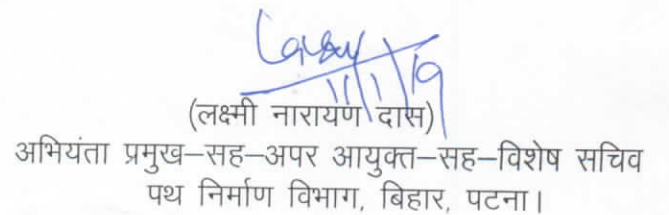 11/1/19
(लक्ष्मी नारायण दास)
अभियंता प्रमुख–सह–अपर आयुक्त–सह–विशेष सचिव
पथ निर्माण विभाग, बिहार, पटना।